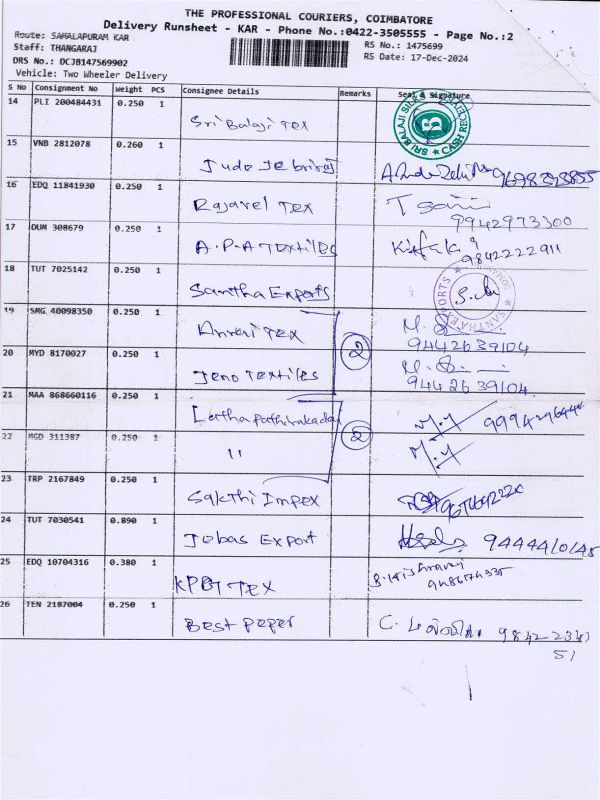 THE PROFESSIONAL COURIERS, COIMBATORE
Delivery Runsheet - KAR - Phone No.:0422-3505555 - Page No.:2
Route: SAMALAPURAM KAR
RS No.: 1475699
Staff: THANGARAJ
RS Date: 17-Dec-2024
DRS No.: DCJB147569902
Vehicle: Two Wheeler Delivery
S No Consignment No Weight PCS Consignee Details Remarks Seal & Signature
14 PLI 200484431 0.250 1
Sri Balaji Tex
B
CASH RECEI
15 VNB 2812078 0.260 1
Jude
16 EDQ 11841930 0.250 1
Rajavel Tex
9942973300
17 DUM 308679 0.250 1
A.P.A Textiles
9842222911
18 TUT 7025142 0.250 1
Santha Exports
SANTHA EXPORTS
19 SMG 40098350 0.250 1
Tex
9442639104
2
20 MYD 8170027 0.250 1
Jeno Textiles
9442639104
21 MAA 868660116 0.250 1
Latha
M.Y
2
22 MGD 311387 0.250 1
11
M.Y
23 TRP 2167849 0.250 1
Sakthi Impex
24 TUT 7030541 0.890 1
Jobas Export
25 EDQ 10704316 0.380 1
Tex
26 TEN 2187004 0.250 1
Best Paper
C.
51